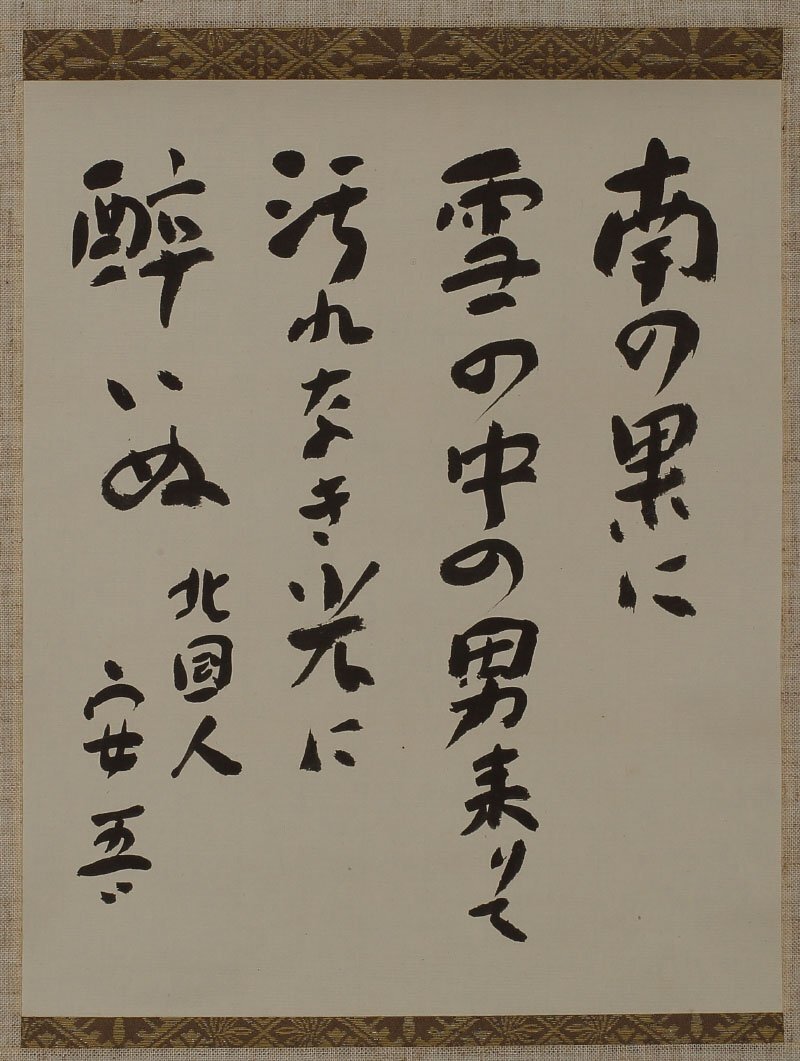 南の果に
雪の中の男来りて
汚れなき光に
酔いぬ
北国人
安五